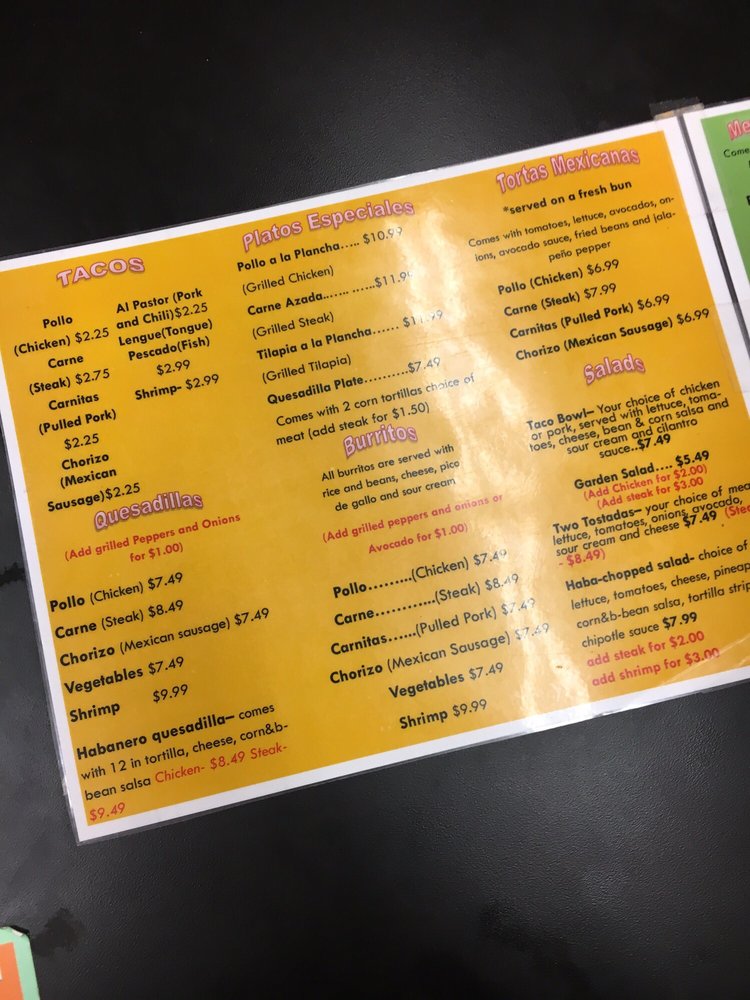 TACOS
Pollo
(Chicken) $2.25
Carne
(Steak) $2.75
Carnitas
(Pulled Pork)
$2.25
Chorizo
(Mexican
Sausage)$2.25
Al Pastor (Pork
and Chili)$2.25
Lengue(Tongue)
Pescado(Fish)
$2.99
Shrimp- $2.99
Quesadillas
(Add grilled Peppers and Onions
for $1.00)
Pollo (Chicken) $7.49
Carne (Steak) $8.49
Chorizo (Mexican sausage) $7.49
Vegetables $7.49
Shrimp $9.99
Habanero quesadilla– comes
with 12 in tortilla, cheese, corn&b-
bean salsa Chicken- $8.49 Steak-
$9.49
Platos Especiales
Pollo a la Plancha..... $10.99
(Grilled Chicken)
Carne Azada...... ......$11.99
(Grilled Steak)
Tilapia a la Plancha...... $11.99
(Grilled Tilapia)
Quesadilla Plate..........$7.49
Comes with 2 corn tortillas choice of
meat (add steak for $1.50)
Burritos
All burritos are served with
rice and beans, cheese, pico
de gallo and sour cream
(Add grilled peppers and onions or
Avocado for $1.00)
Pollo.........(Chicken) $7.49
Carne............(Steak) $8.49
Carnitas......(Pulled Pork) $7.49
Chorizo (Mexican Sausage) $7.49
Vegetables $7.49
Shrimp $9.99
Tortas Mexicanas
*served on a fresh bun
Comes with tomatoes, lettuce, avocados, on-
ions, avocado sauce, fried beans and jala-
peño pepper
Pollo (Chicken) $6.99
Carne (Steak) $7.99
Carnitas (Pulled Pork) $6.99
Chorizo (Mexican Sausage) $6.99
Salads
Taco Bowl– Your choice of chicken
or pork, served with lettuce, toma-
toes, cheese, bean & corn salsa and
sour cream and cilantro
sauce..$7.49
Garden Salad.... $5.49
(Add Chicken for $2.00)
(Add steak for $3.00
Two Tostadas– your choice of mea
lettuce, tomatoes, onions, avocado,
sour cream and cheese $7.49 (Stea
- $8.49)
Haba-chopped salad- choice of
lettuce, tomatoes, cheese, pineap
corn&b-bean salsa, tortilla strip
chipotle sauce $7.99
add steak for $2.00
add shrimp for $3.00
Me
Come